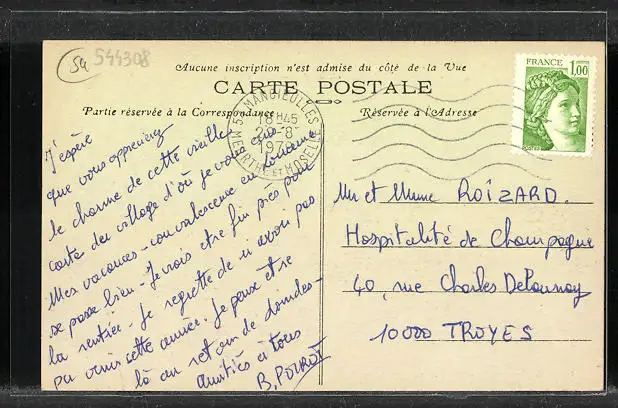 54
544308
Aucune inscription n'est admise du côté de la Vue
CARTE POSTALE
Partie réservée à la Correspondance
Réservée à l'Adresse
FRANCE
1,00
MANCIEULLES
18H45
28-8
197
MEURTHE ET MOSELLE
J'espère
que vous apprecierez
le charme de cette vieille
carte du village d'où je vous
Mes vacances - convalescence en
se passe bien - Je vais etre fin près pour
la rentrée. Je regrette de n'avoir pas
pu venir cette année. Je peux etre
là au retour de
Amitiés à tous
B. POIROT
Mr et Mme ROIZARD.
Hospitalité de Champagne
40, rue Charles Delaunay
10000 TROYES